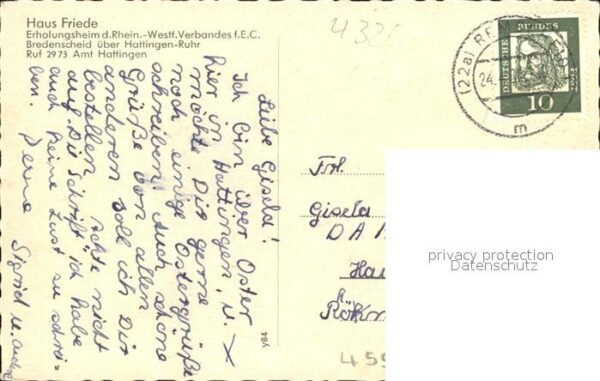 Haus Friede
Erholungsheim d. Rhein.-Westf. Verbandes f. E.C.
Bredenscheid über Hattingen-Ruhr
Ruf 2973 Amt Hattingen
Liebe Gisela!
Ich bin über Oster
hier in Hattingen, u.
möchte Dir gerne
noch einige Ostergrüße
schreiben! Auch schöne
Grüße von allen
anderen soll ich Dir
bestellen. Achte nicht
auf "Die Schrift" ich habe
auch keine Lust zu schrei-
ben. Sigrid u.
4320
(22a)
24.
m
DEUTSCHE BUNDESPOST
10
Frl.
Gisela
Y84
privacy protection
Datenschutz